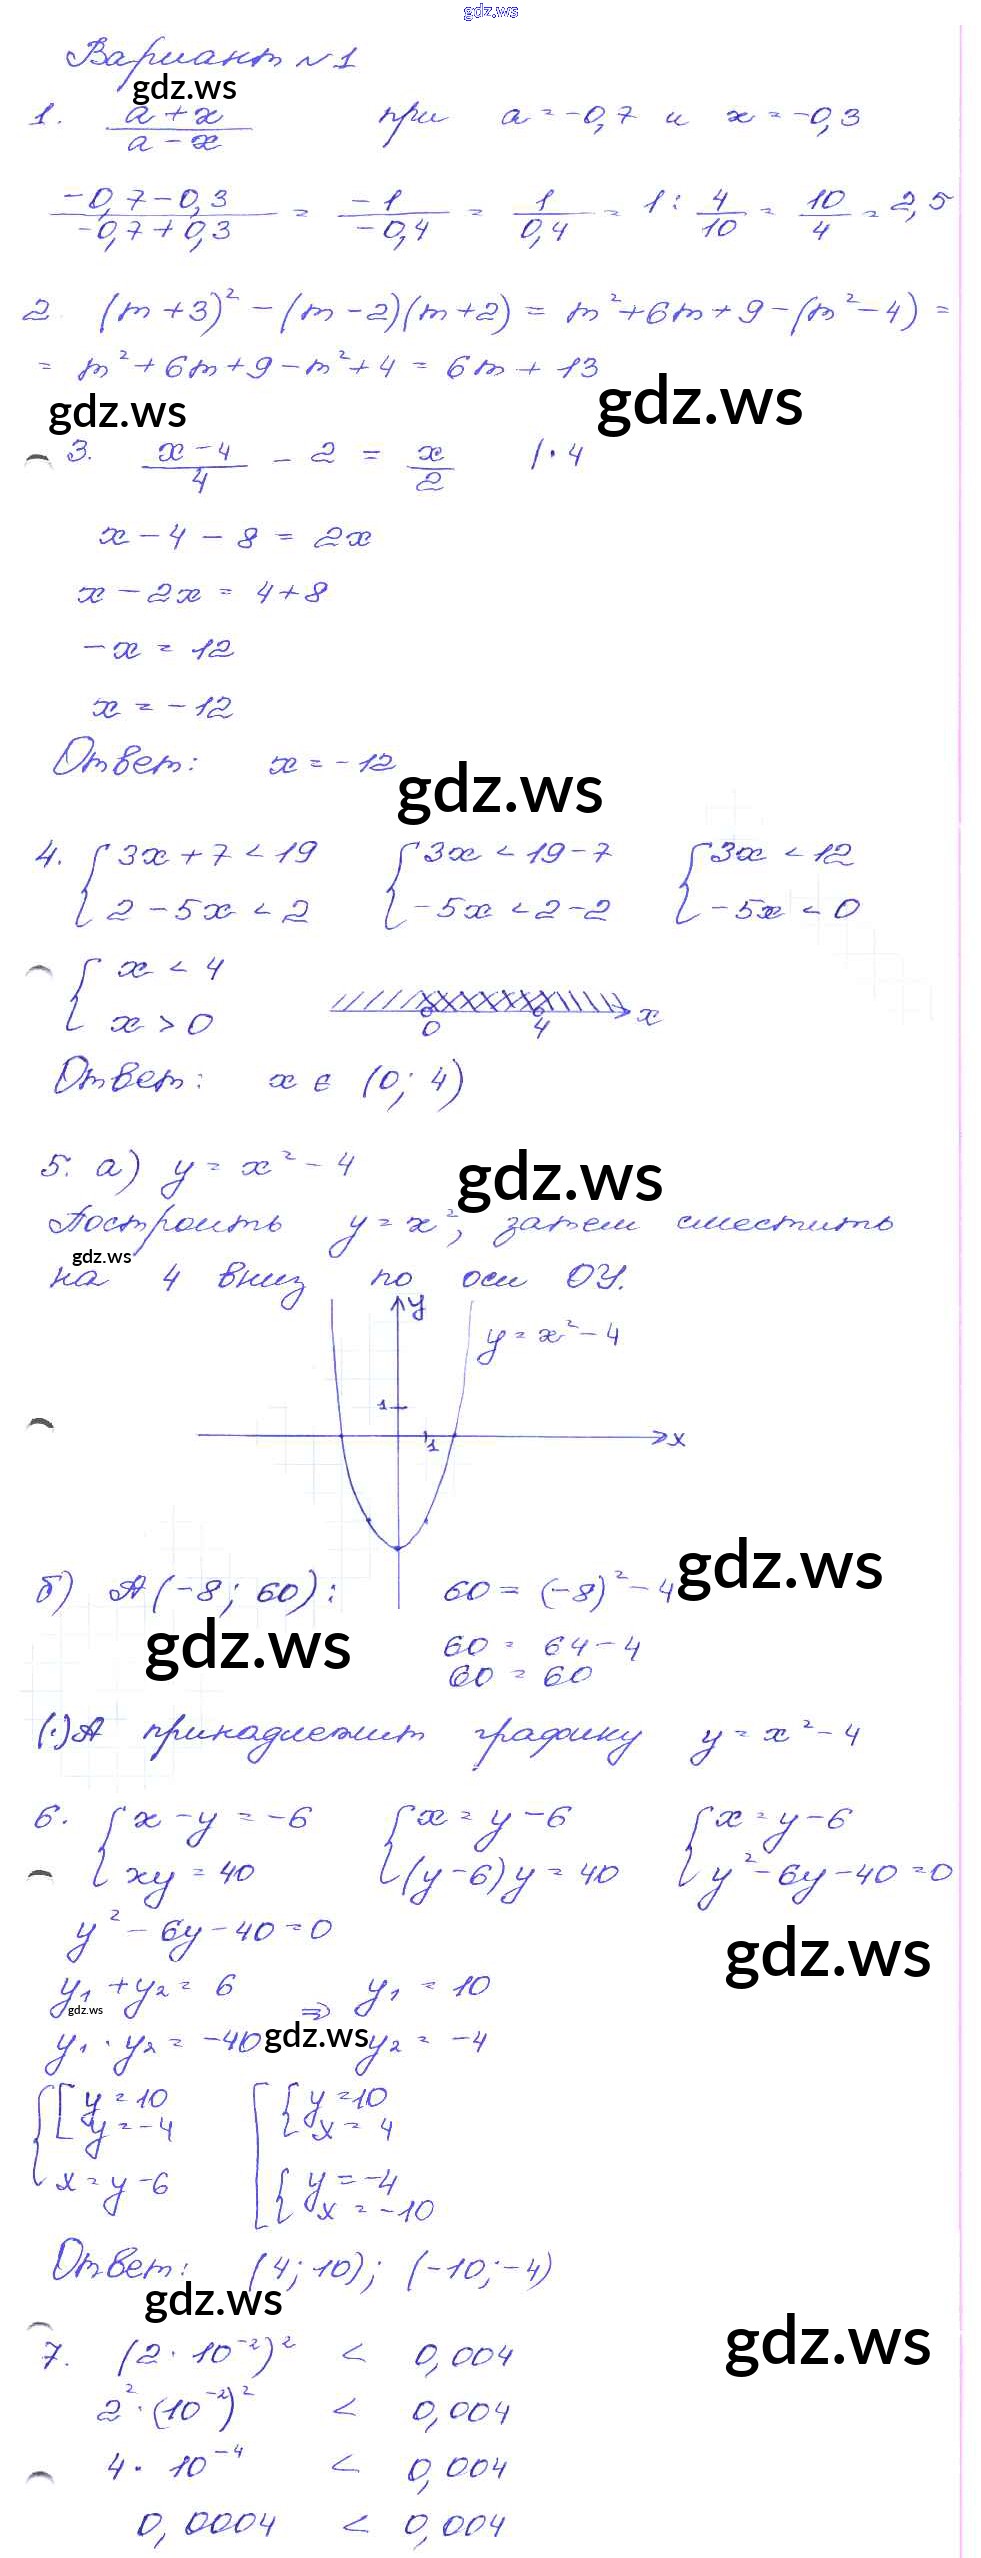 gdz.ws
Вариант №1
gdz.ws
1. (a+x)/(a-x) при a = -0,7 и x = -0,3
(-0,7-0,3)/(-0,7+0,3) = (-1)/(-0,4) = 1/0,4 = 1 : 4/10 = 10/4 = 2,5
2. (m+3)² - (m-2)(m+2) = m²+6m+9-(m²-4) =
= m²+6m+9-m²+4 = 6m+13
gdz.ws gdz.ws
3. (x-4)/4 - 2 = x/2 |·4
x-4-8 = 2x
x-2x = 4+8
-x = 12
x = -12
Ответ: x = -12
gdz.ws
4. { 3x+7<19 { 3x<19-7 { 3x<12
{ 2-5x<2 { -5x<2-2 { -5x<0
{ x<4
{ x>0
0 4 x
Ответ: x ∈ (0; 4)
5. а) y = x²-4
gdz.ws
Построить y = x², затем сместить
gdz.ws
на 4 вниз по оси OY.
y
y = x²-4
1
1 x
б) A(-8; 60): 60 = (-8)²-4
gdz.ws
gdz.ws
60 = 64-4
60 = 60
(·)A принадлежит графику y = x²-4
6. { x-y = -6 { x = y-6 { x = y-6
{ xy = 40 { (y-6)y = 40 { y²-6y-40=0
y²-6y-40=0
gdz.ws
y₁+y₂ = 6 ⇒ y₁ = 10
gdz.ws
y₁·y₂ = -40 y₂ = -4
gdz.ws
{ [ y = 10 [ { y = 10
{ [ y = -4 [ { x = 4
{ x = y-6 [ { y = -4
[ { x = -10
Ответ: (4; 10); (-10; -4)
gdz.ws
gdz.ws
7. (2·10⁻²)² < 0,004
2²·(10⁻²)² < 0,004
4·10⁻⁴ < 0,004
0,0004 < 0,004